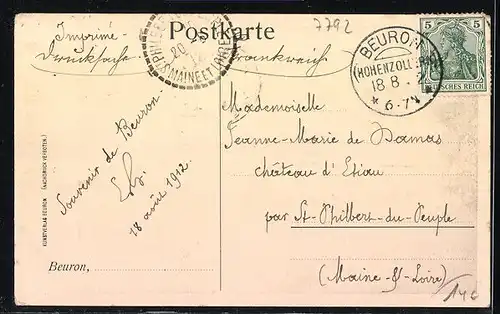 Postkarte
7792
Imprimé
Drucksache
Frankreich
20
MAINE ET LOIRE
BEURON
(HOHENZOLLERN)
18 8
* 6-7 *
5 5
DEUTSCHES REICH
Mademoiselle
Jeanne-Marie de Damas
château d'Etiau
par St-Philbert-du-Peuple
(Maine-&-Loire)
Souvenir de Beuron
18 août 1912
KUNSTVERLAG BEURON (NACHDRUCK VERBOTEN.)
Beuron,